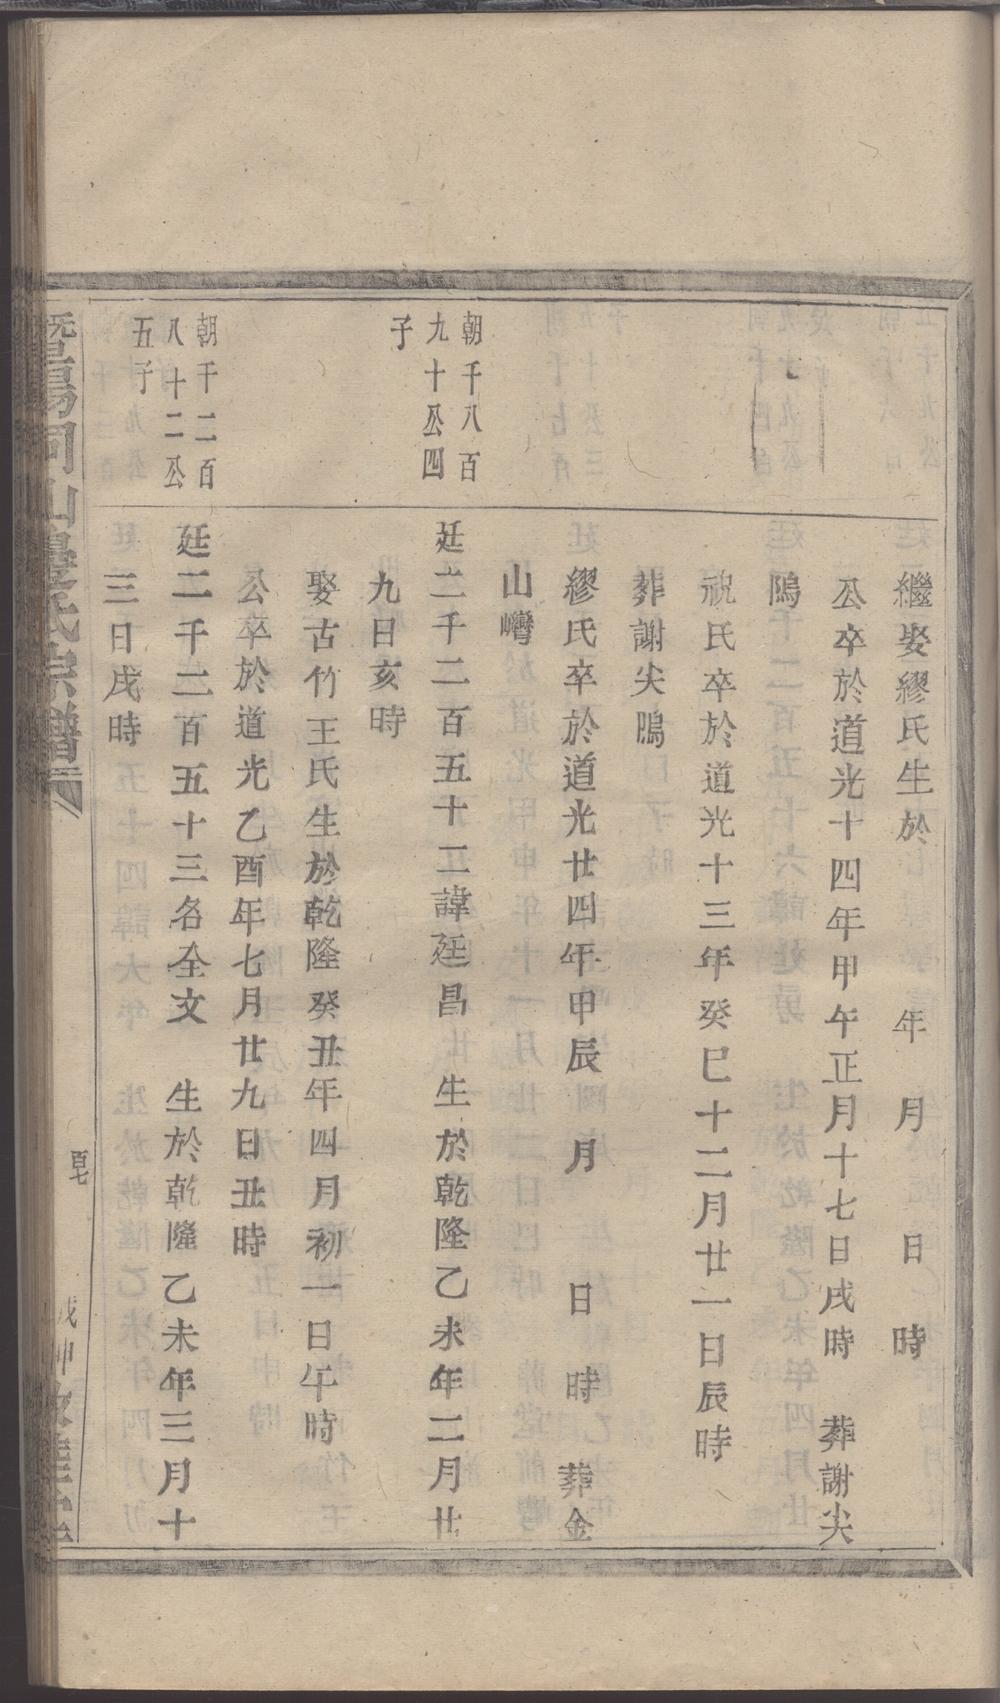 繼娶繆氏生於　年　月　日　時
公卒於道光十四年甲午正月十七日戌時　葬謝尖
隝
祝氏卒於道光十三年癸巳十二月廿一日辰時
葬謝尖隝
繆氏卒於道光廿四年甲辰　月　日　時　葬金
山灣
朝千八百
九十公四
子
廷二千二百五十二諱廷昌　生於乾隆乙未年二月廿
九日亥時
娶古竹王氏生於乾隆癸丑年四月初一日午時
公卒於道光乙酉年七月廿九日丑時
朝千二百
八十二公
五子
廷二千二百五十三名全文　生於乾隆乙未年三月十
三日戌時
暨陽同山邊氏宗譜
百七
戊申